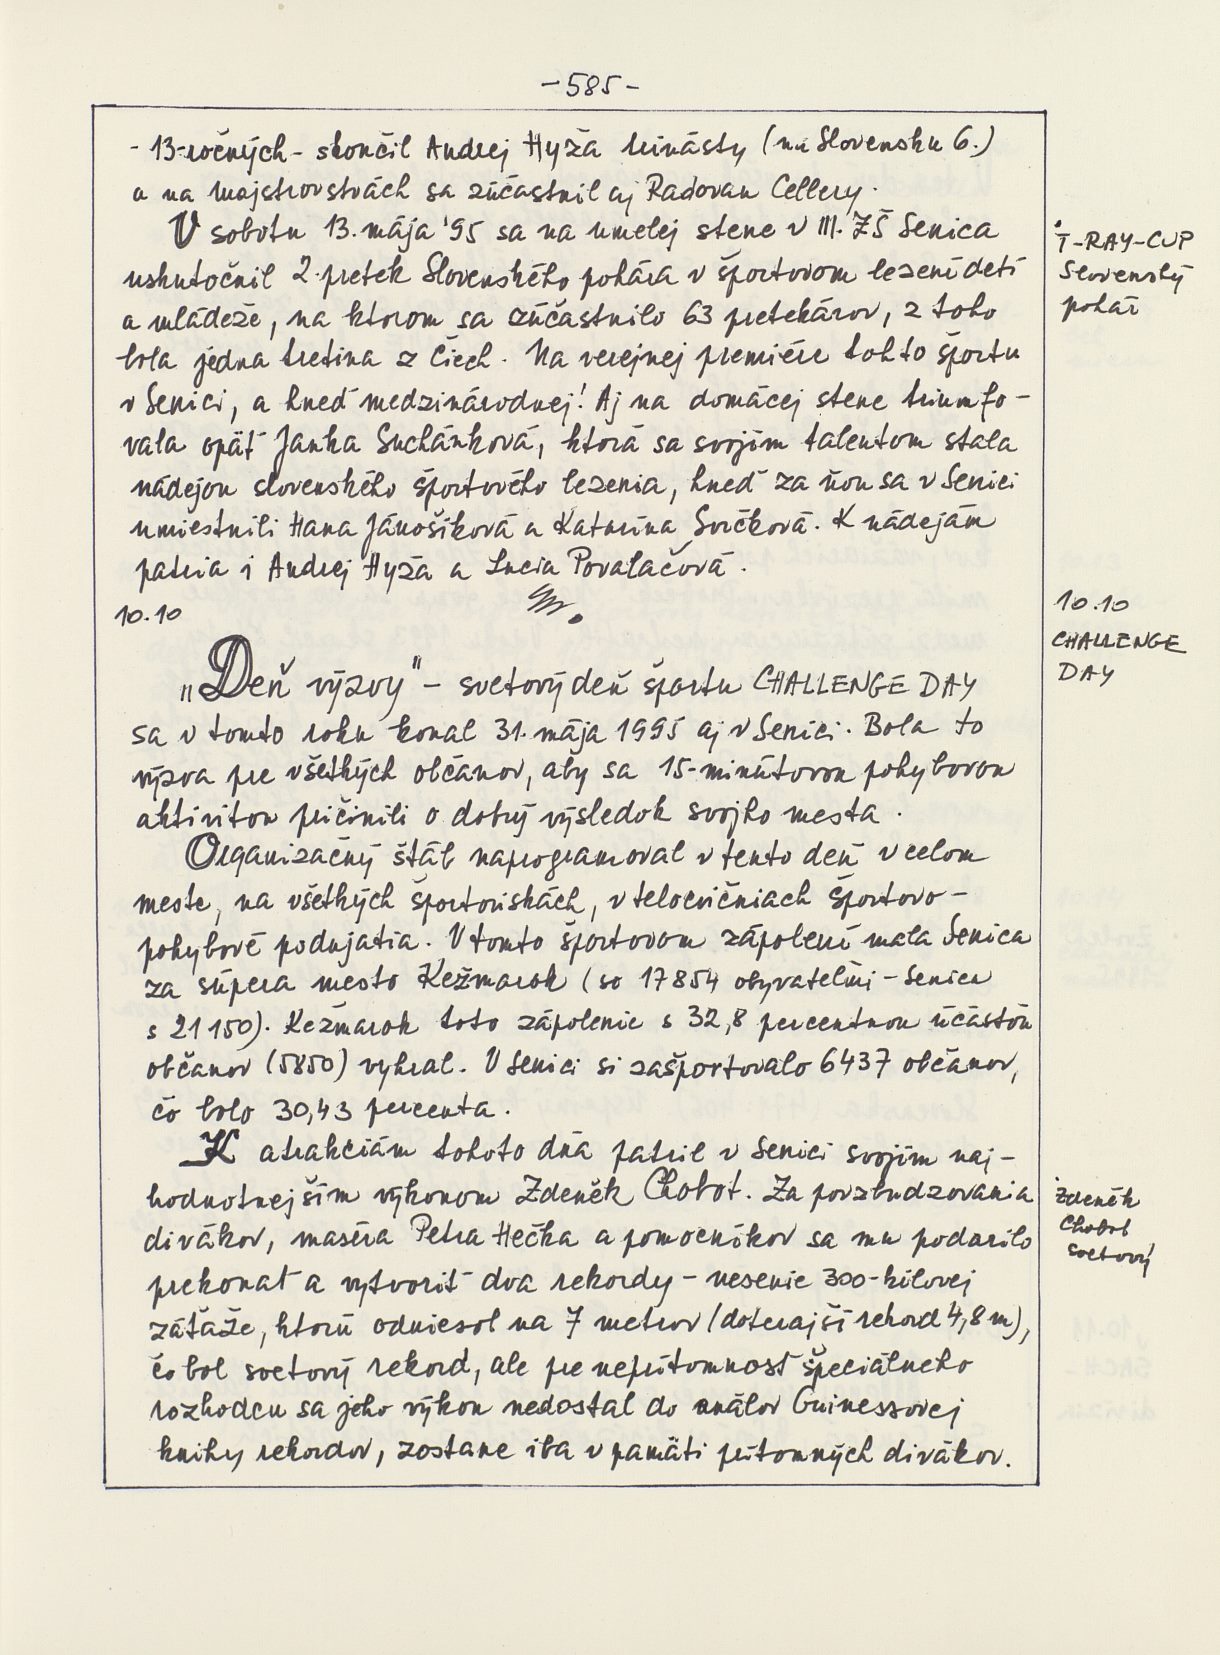 -585-
- 13-ročných - skončil Andrej Hyža trinásty (na Slovensku 6.)
a na majstrovstvách sa zúčastnil aj Radovan Cellery.
V sobotu 13. mája '95 sa na umelej stene v III. ZŠ Senica
uskutočnil 2. pretek Slovenského pohára v športovom lezení detí
a mládeže, na ktorom sa zúčastnilo 63 pretekárov, z toho
bola jedna tretina z Čiech. Na verejnej premiére tohto športu
v Senici, a hneď medzinárodnej! Aj na domácej stene triumfo-
vala opäť Janka Suchánková, ktorá sa svojím talentom stala
nádejou slovenského športového lezenia, hneď za ňou sa v Senici
umiestnili Hana Jánošíková a Katarína Svíčková. K nádejám
patria i Andrej Hyža a Lucia Povalačová.
10.10
„Deň výzvy" - svetový deň športu CHALLENGE DAY
sa v tomto roku konal 31. mája 1995 aj v Senici. Bola to
výzva pre všetkých občanov, aby sa 15-minútovou pohybovou
aktivitou pričinili o dobrý výsledok svojho mesta.
Organizačný štáb naprogramoval v tento deň v celom
meste, na všetkých športoviskách, v telocvičniach športovo-
pohybové podujatia. V tomto športovom zápolení mala Senica
za súpera mesto Kežmarok (so 17 854 obyvateľmi - Senica
s 21 150). Kežmarok toto zápolenie s 32,8 percentnou účasťou
občanov (5850) vyhral. V Senici si zašportovalo 6437 občanov,
čo bolo 30,43 percenta.
K atrakciám tohoto dňa patril v Senici svojím naj-
hodnotnejším výkonom Zdeněk Chobot. Za povzbudzovania
divákov, maséra Petra Hečka a pomocníkov sa mu podarilo
prekonať a vytvoriť dva rekordy - nesenie 300-kilovej
záťaže, ktorú odniesol na 7 metrov (doterajší rekord 4,8 m),
čo bol svetový rekord, ale pre neprítomnosť špeciálneho
rozhodcu sa jeho výkon nedostal do análov Guinessovej
knihy rekordov, zostane iba v pamäti prítomných divákov.
T-RAY-CUP
Slovenský
pohár
10.10
CHALLENGE
DAY
Zdeněk
Chobot
svetový